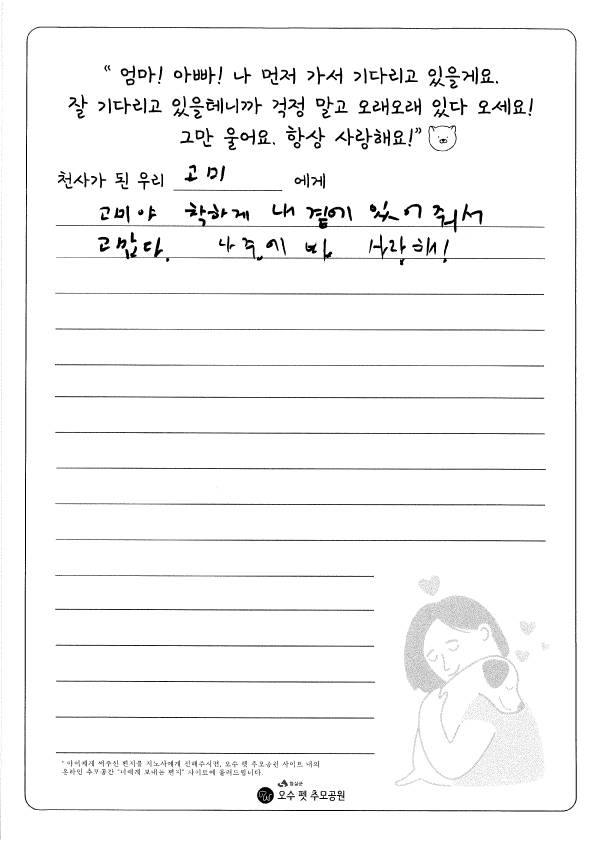 “ 엄마! 아빠! 나 먼저 가서 기다리고 있을게요.
잘 기다리고 있을테니까 걱정 말고 오래오래 있다 오세요!
그만 울어요. 항상 사랑해요!”
천사가 된 우리 고미 에게
고미야 착하게 내 곁에 있어 줘서
고맙다. 나중에 봐 사랑해!
* 아이에게 써주신 편지를 지도사에게 전해주시면, 오수 펫 추모공원 사이트 내의
온라인 추모공간 "너에게 보내는 편지" 사이트에 올려드립니다.
임실군
오수 펫 추모공원